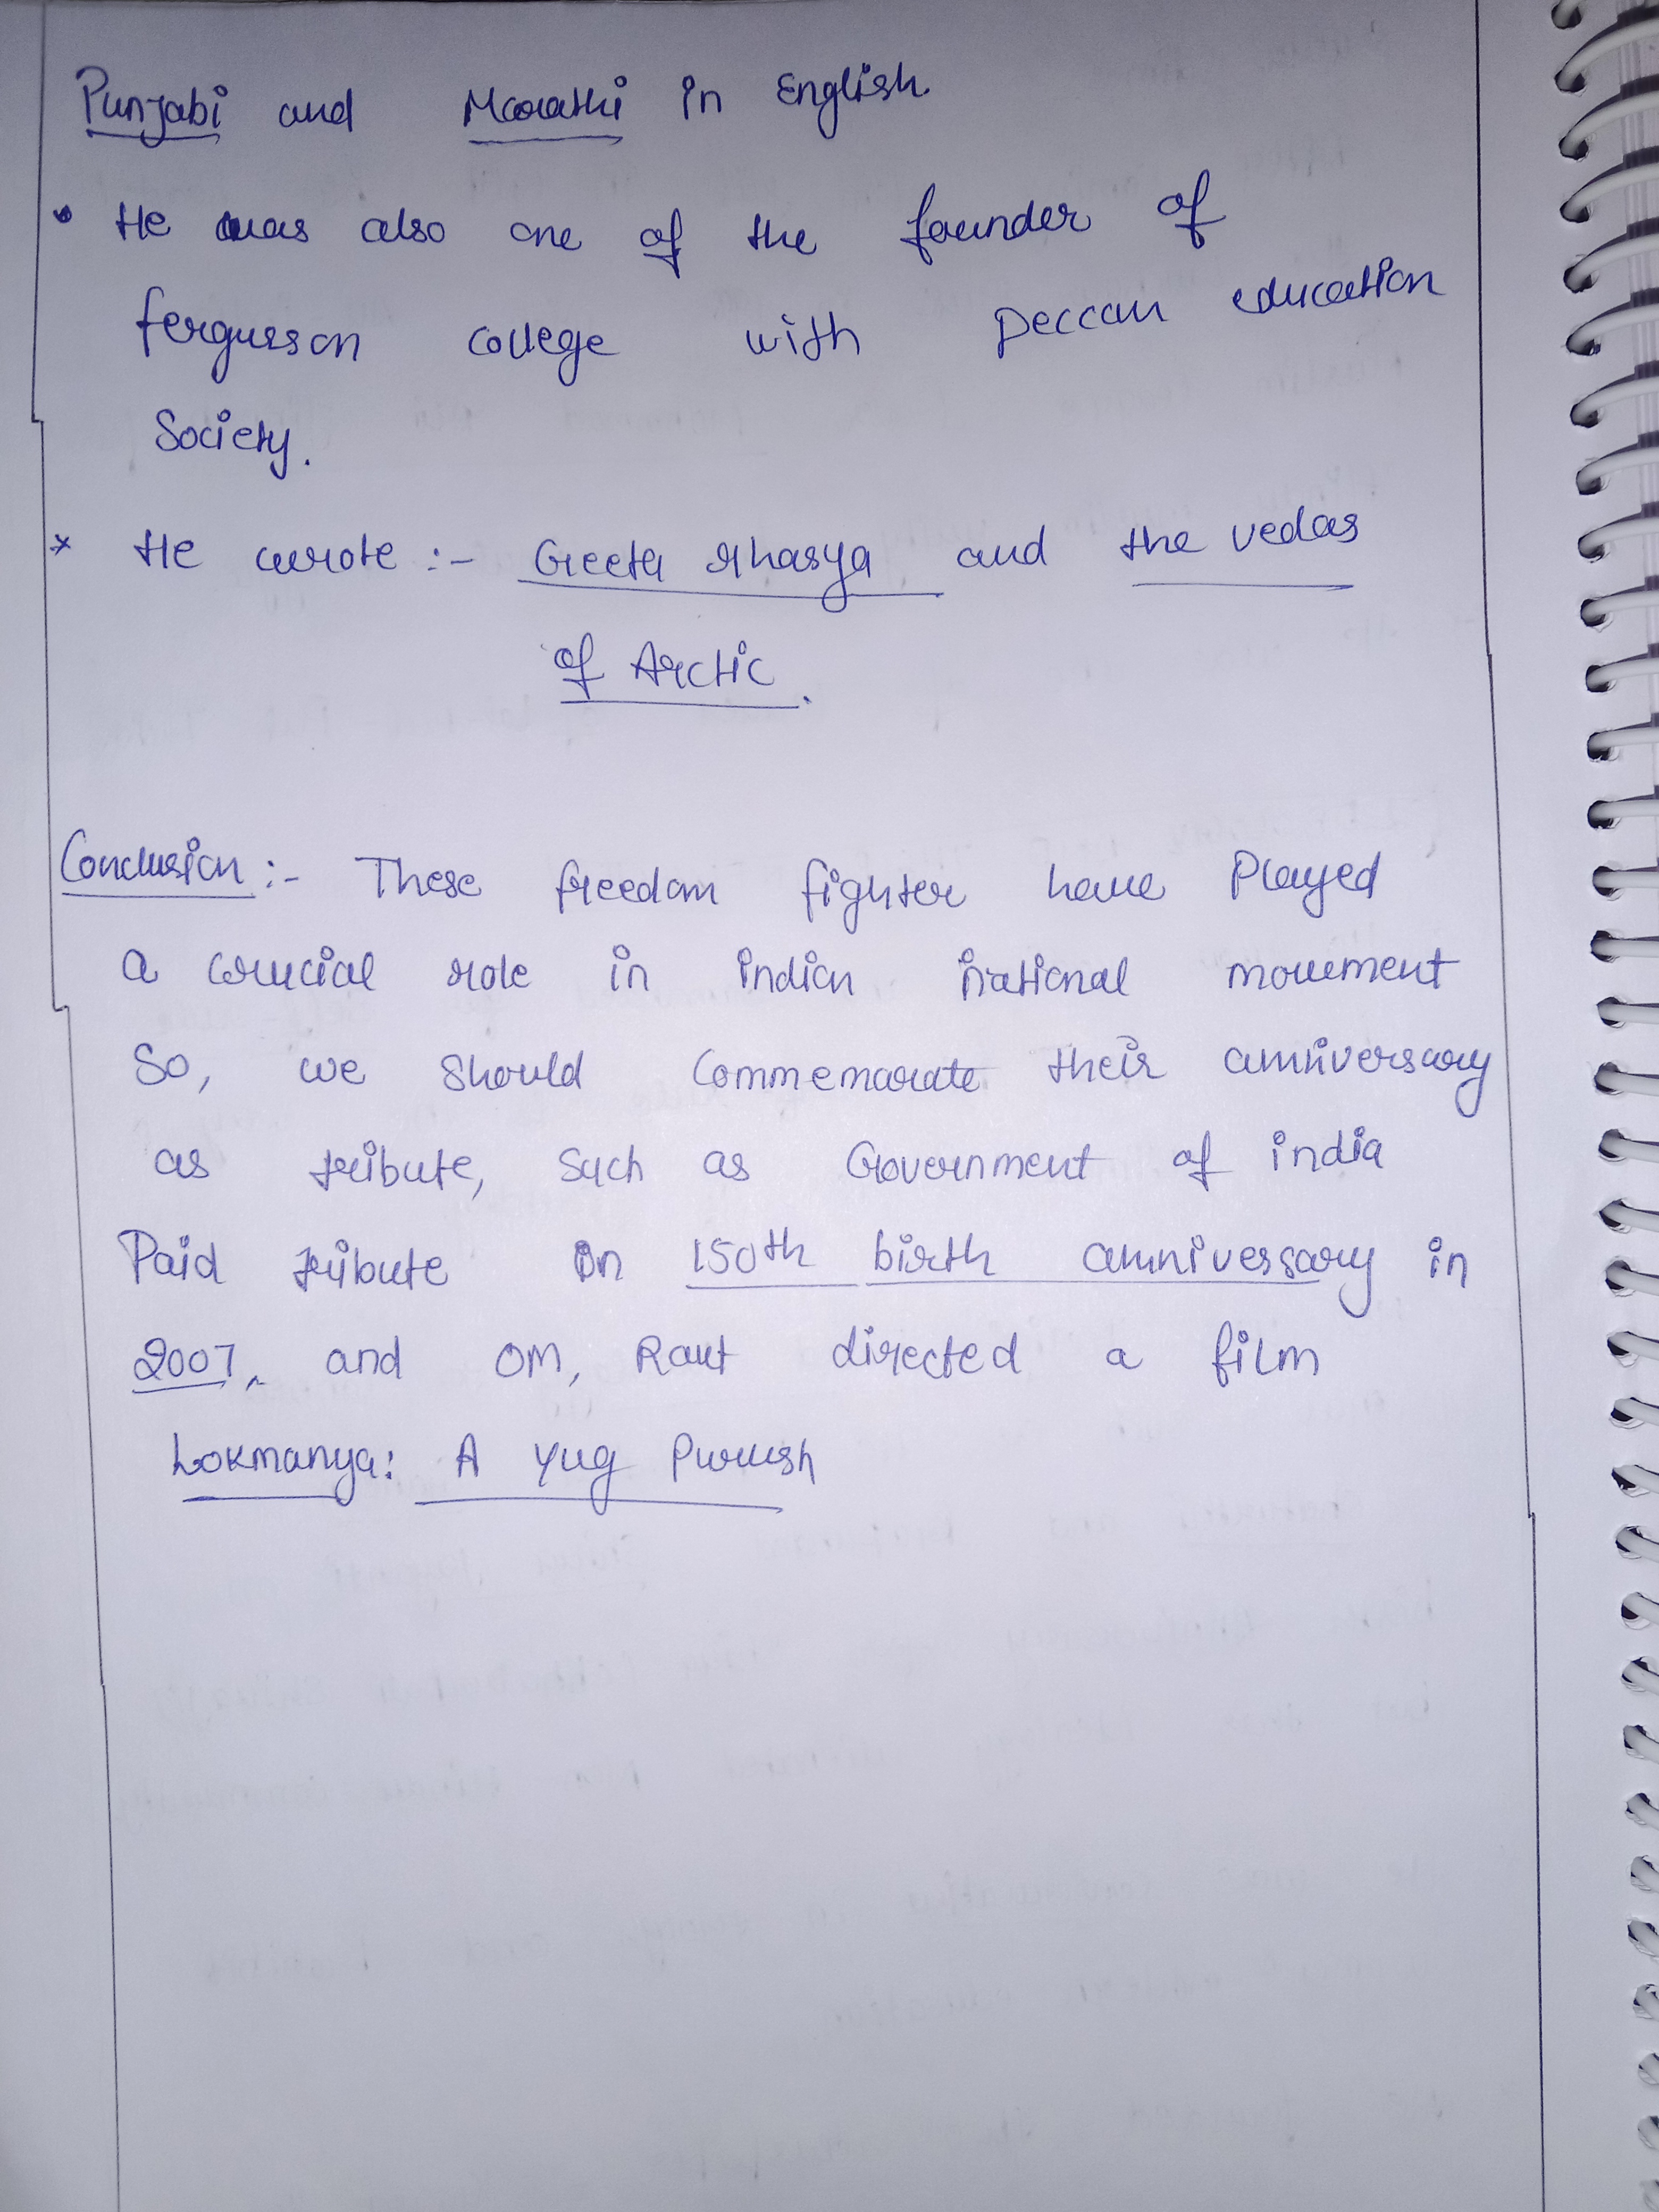 Punjabi and Marathi in English
• He was also one of the founder of
fergusson college with Deccan education
Society.
* He wrote :- Geeta rhasya and the vedas
of Arctic.
Conclusion :- These freedom fighter have Played
a crucial role in indian national movement
So, we should commemorate their anniversary
as tribute, Such as Government of india
Paid tribute on 150th birth anniversary in
2007, and OM, Raut directed a film
Lokmanya: A Yug Purush